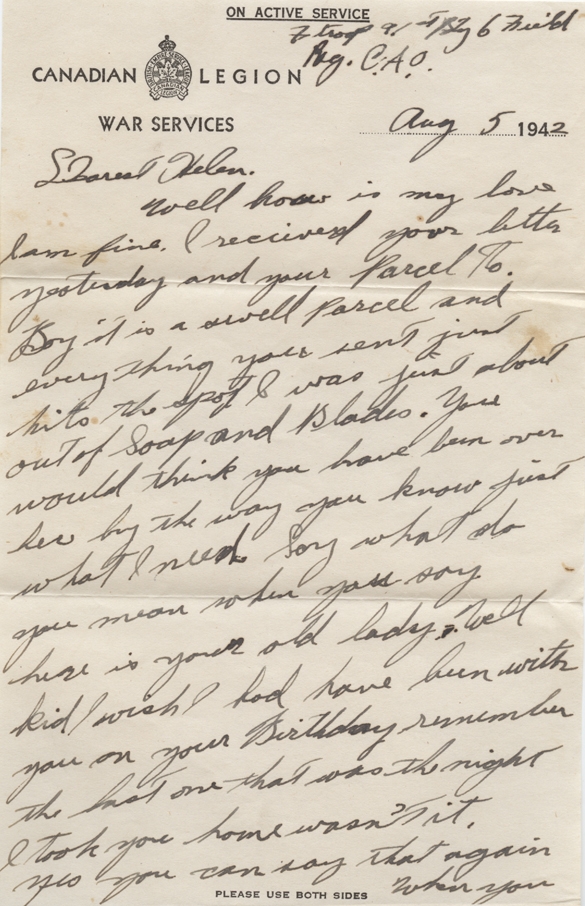 ON ACTIVE SERVICE
F troop 91st Bty 6 Field
Reg. C.A.O.
CANADIAN LEGION
WAR SERVICES
Aug 5 1942
Dearest Helen.
Well how is my love
I am fine. I recieved your letter
yesterday and your Parcel To.
Boy it is a swell Parcel and
everything your sent just
hits the spot I was just about
out of Soap and Blades. You
would think you have been over
her by the way you know just
what I need Say what do
you mean when you say
here is your old lady? Well
kid I wish I had have been with
you on your Birthday remember
the last one that was the night
I took you home wasn't it.
yes you can say that again
when you
PLEASE USE BOTH SIDES